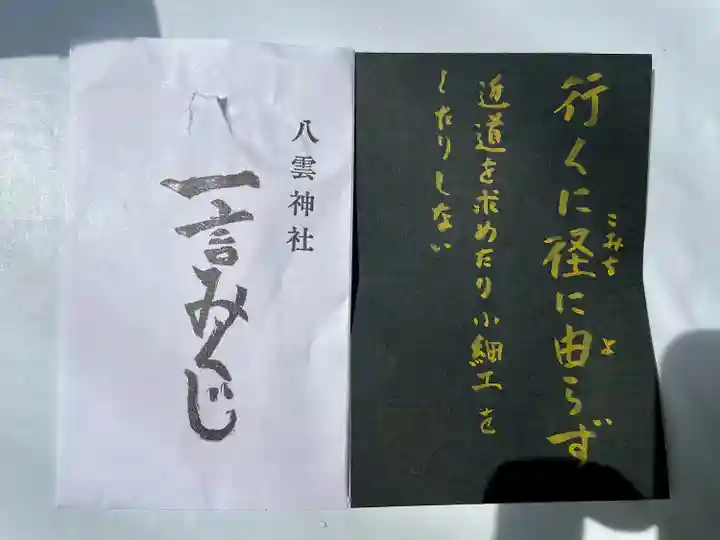 行くに径に由らず
こみち
よ
近道を求めたり小細工を
したりしない
八雲神社
一言みくじ